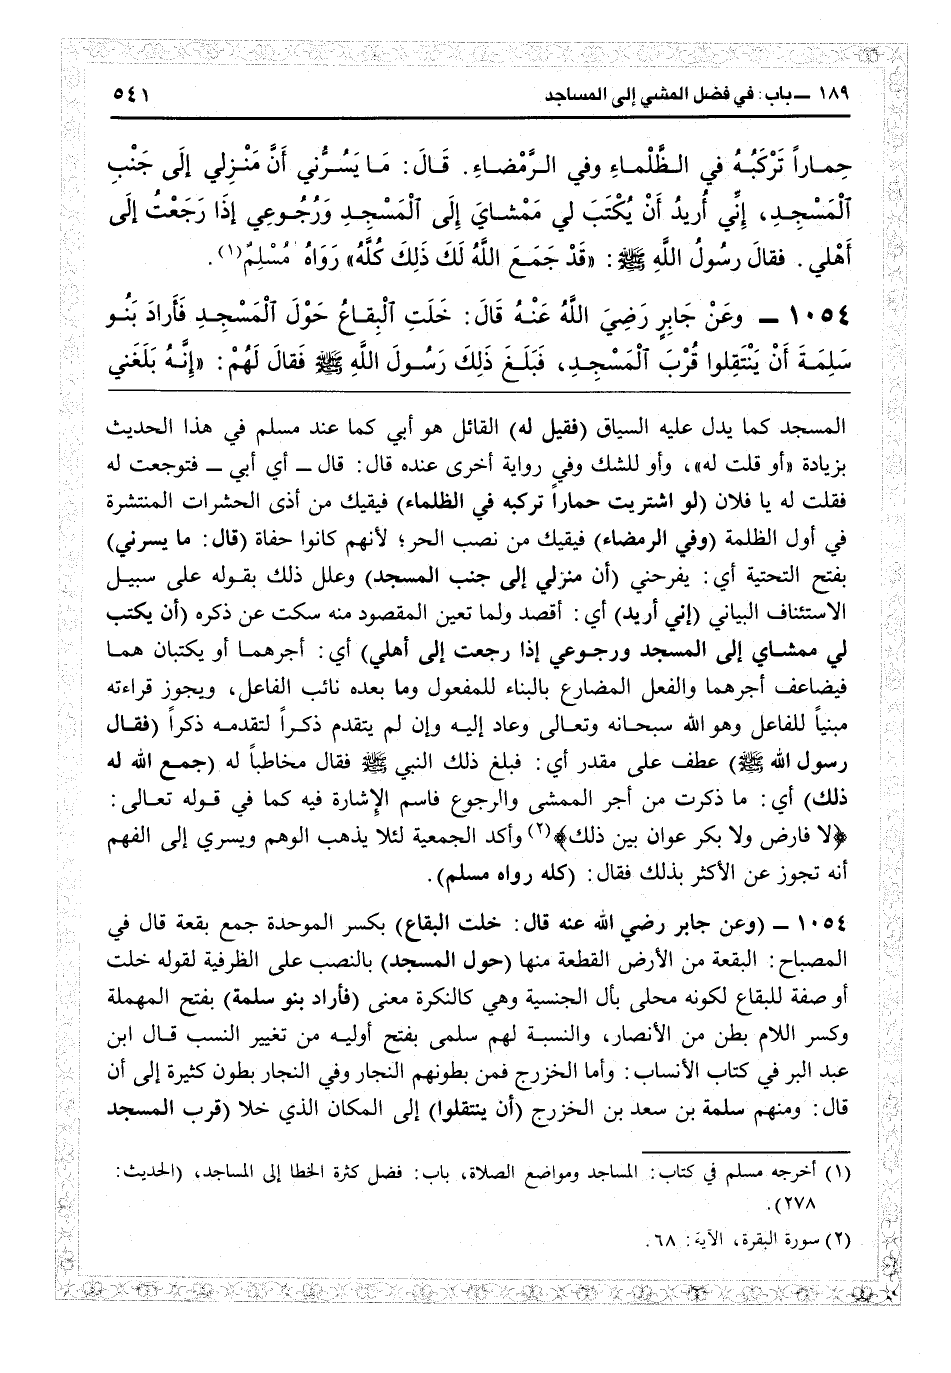 ١٨٩ ــ باب: في فضل المشي إلى المساجد
٥٤١
حِماراً تَرْكَبُهُ في الظَّلْماءِ وفي الرَّمْضاءِ. قَالَ: مَا يَسُرُّني أَنَّ مَنْزِلي إلَى جَنْبِ
ٱلْمَسْجِدِ، إنِّي أُريدُ أَنْ يُكْتَبَ لي مَمْشايَ إِلَى ٱلْمَسْجِدِ وَرُجُوعِي إذَا رَجَعْتُ إلَى
أَهْلي. فقالَ رَسُولُ اللَّهِ ﷺ: «قَدْ جَمَعَ اللَّهُ لَكَ ذَلِكَ كُلَّهُ» رَوَاهُ مُسْلِمٌ(١).
١٠٥٤ ــ وعَنْ جَابِرٍ رَضِيَ اللَّهُ عَنْهُ قَالَ: خَلَتِ ٱلْبِقاعُ حَوْلَ ٱلْمَسْجِدِ فَأَرادَ بَنُو
سَلِمَةَ أَنْ يَنْتَقِلوا قُرْبَ ٱلْمَسْجِدِ، فَبَلَغَ ذَلِكَ رَسُولَ اللَّهِ ﷺ فَقالَ لَهُمْ: «إنَّهُ بَلَغَني
المسجد كما يدل عليه السياق (فقيل له) القائل هو أبي كما عند مسلم في هذا الحديث
بزيادة «أو قلت له»، وأو للشك وفي رواية أخرى عنده قال: قال ــ أي أبي ــ فتوجعت له
فقلت له يا فلان (لو اشتريت حماراً تركبه في الظلماء) فيقيك من أذى الحشرات المنتشرة
في أول الظلمة (وفي الرمضاء) فيقيك من نصب الحر؛ لأنهم كانوا حفاة (قال: ما يسرني)
بفتح التحتية أي: يفرحني (أن منزلي إلى جنب المسجد) وعلل ذلك بقوله على سبيل
الاستئناف البياني (إني أريد) أي: أقصد ولما تعين المقصود منه سكت عن ذكره (أن يكتب
لي ممشاي إلى المسجد ورجوعي إذا رجعت إلى أهلي) أي: أجرهما أو يكتبان هما
فيضاعف أجرهما والفعل المضارع بالبناء للمفعول وما بعده نائب الفاعل، ويجوز قراءته
مبنياً للفاعل وهو الله سبحانه وتعالى وعاد إليه وإن لم يتقدم ذكراً لتقدمه ذكراً (فقال
رسول الله ﷺ) عطف على مقدر أي: فبلغ ذلك النبي ﷺ فقال مخاطباً له (جمع الله له
ذلك) أي: ما ذكرت من أجر الممشى والرجوع فاسم الإشارة فيه كما في قوله تعالى:
﴿لا فارض ولا بكر عوان بين ذلك﴾(٢) وأكد الجمعية لئلا يذهب الوهم ويسري إلى الفهم
أنه تجوز عن الأكثر بذلك فقال: (كله رواه مسلم).
١٠٥٤ ــ (وعن جابر رضي الله عنه قال: خلت البقاع) بكسر الموحدة جمع بقعة قال في
المصباح: البقعة من الأرض القطعة منها (حول المسجد) بالنصب على الظرفية لقوله خلت
أو صفة للبقاع لكونه محلى بأل الجنسية وهي كالنكرة معنى (فأراد بنو سلمة) بفتح المهملة
وكسر اللام بطن من الأنصار، والنسبة لهم سلمى بفتح أوليه من تغيير النسب قال ابن
عبد البر في كتاب الأنساب: وأما الخزرج فمن بطونهم النجار وفي النجار بطون كثيرة إلى أن
قال: ومنهم سلمة بن سعد بن الخزرج (أن ينتقلوا) إلى المكان الذي خلا (قرب المسجد
(١) أخرجه مسلم في كتاب: المساجد ومواضع الصلاة، باب: فضل كثرة الخطا إلى المساجد، (الحديث:
٢٧٨).
(٢) سورة البقرة، الآية: ٦٨.